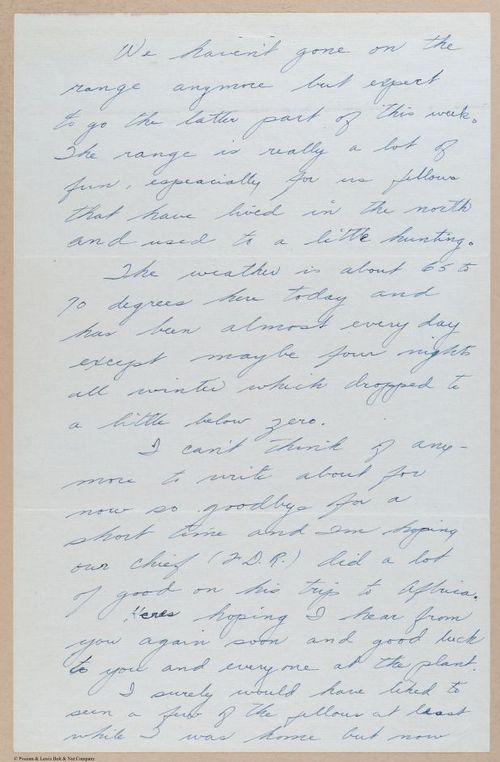 We haven't gone on the
range anymore but expect
to go the latter part of this week.
The range is really a lot of
fun, espeacially for us fellows
that have lived in the north
and used to a little hunting.
The weather is about 65 to
70 degrees here today and
has been almost every day
except maybe four nights
all winter which dropped to
a little below zero.
I can't think of any-
more to write about for
now so goodbye for a
short time and I'm hoping
our chief (F.D.R.) did a lot
of good on his trip to Africa.
Heres hoping I hear from
you again soon and good luck
to you and everyone at the plant.
I surely would have liked to
seen a few of the fellows at least
while I was home but now
© Pheoll & Lewis Bolt & Nut Company